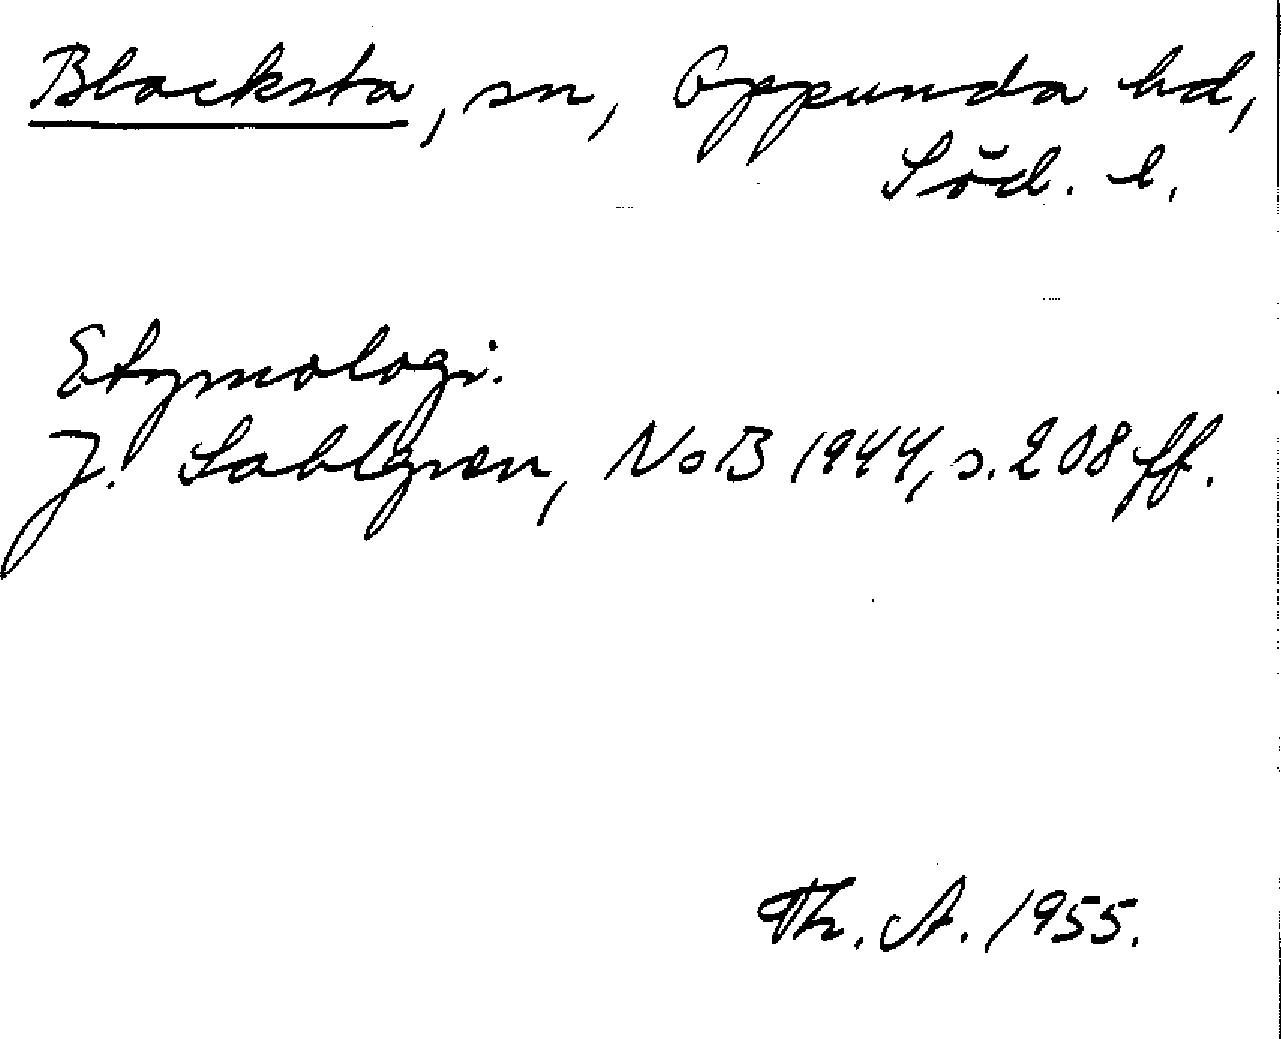 Blacksta, sn, Oppunda hd,
Söd. l.
Etymologi.
J. Sahlgren, NoB 1944, s. 208 ff.
Th. A. 1955.